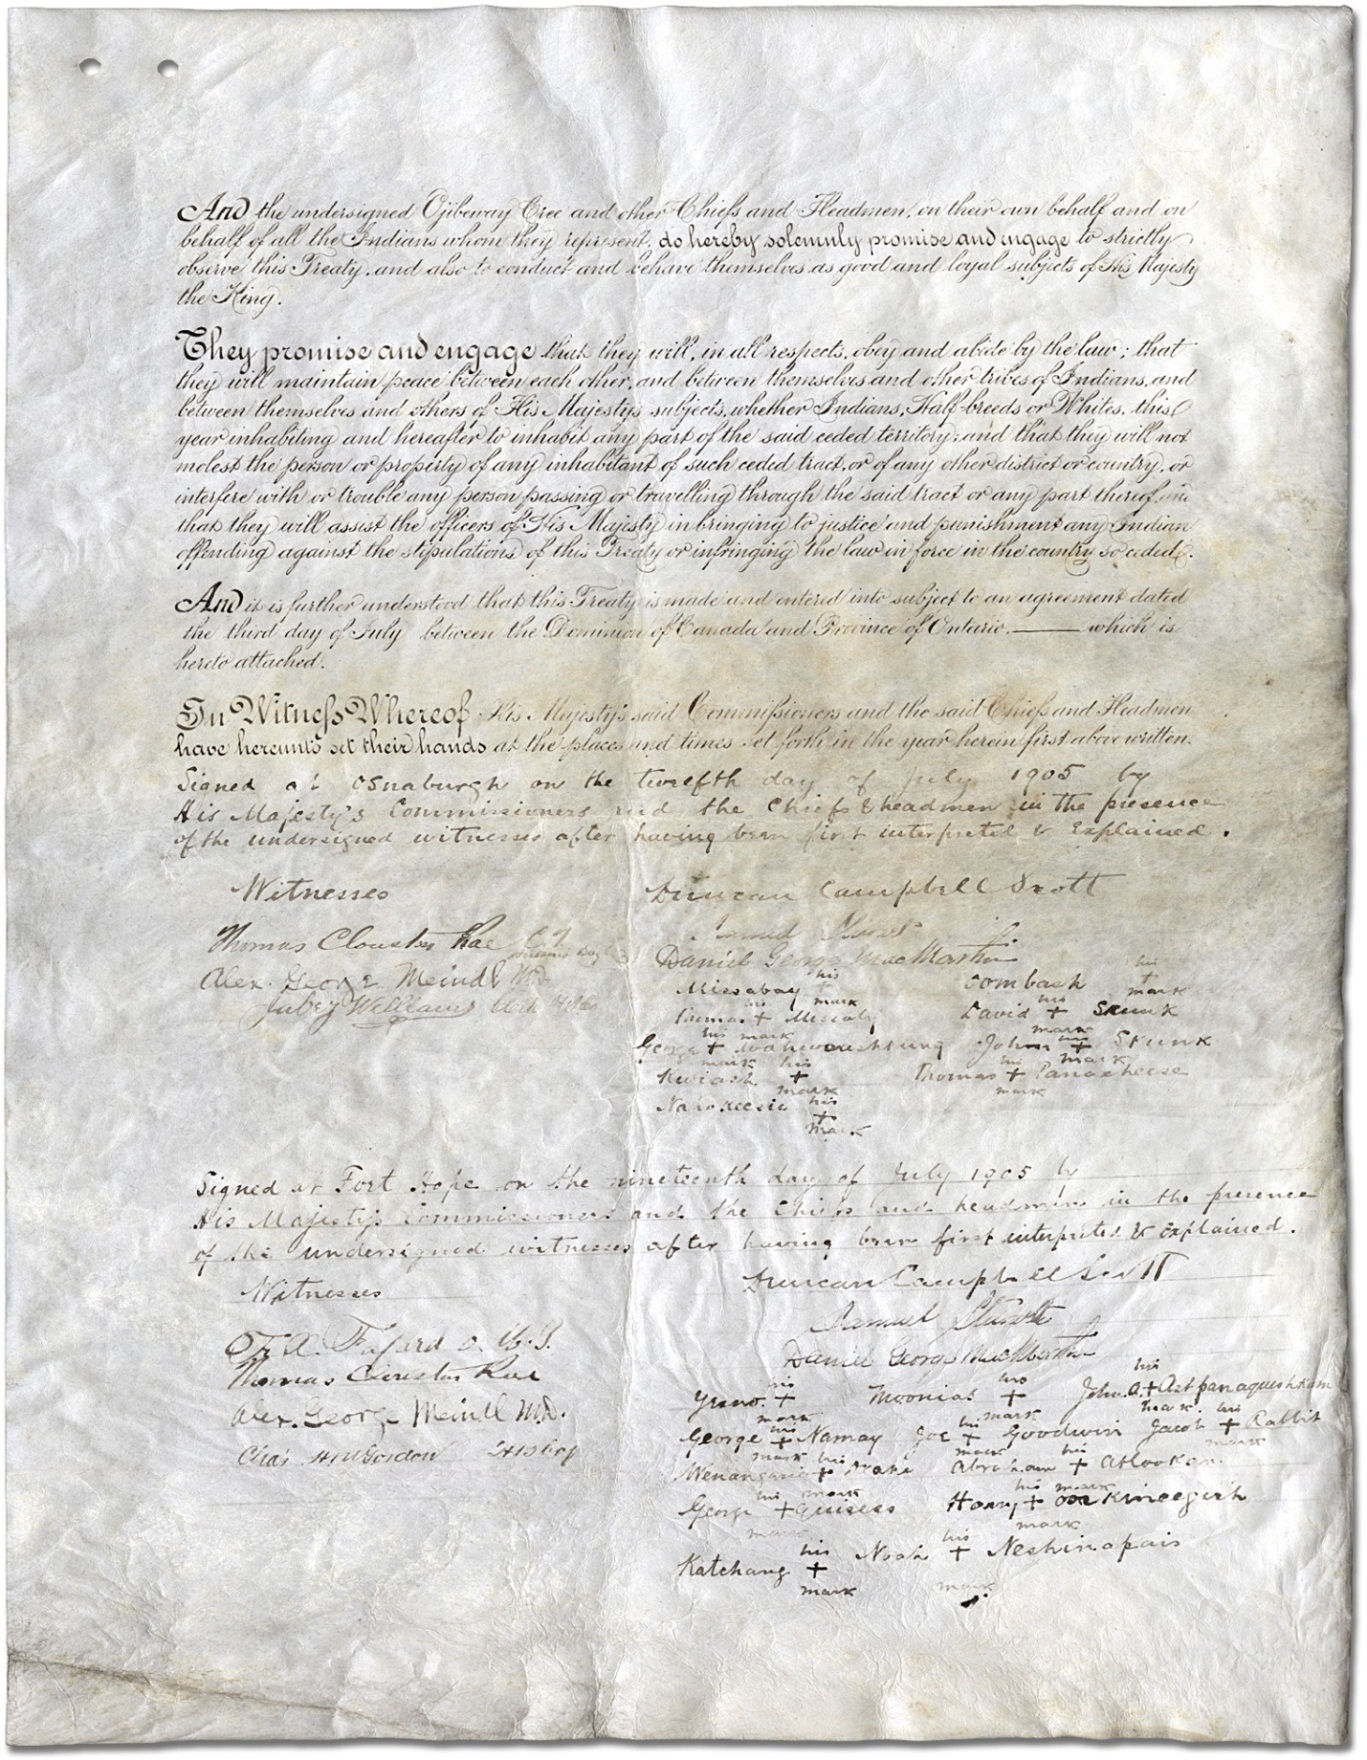 And the undersigned Ojibeway Cree and other Chiefs and Headmen, on their own behalf and on
behalf of all the Indians whom they represent, do hereby solemnly promise and engage to strictly
observe this Treaty, and also to conduct and behave themselves as good and loyal subjects of His Majesty
the King.
They promise and engage that they will, in all respects, obey and abide by the law; that
they will maintain peace between each other, and between themselves and other tribes of Indians, and
between themselves and others of His Majesty's subjects, whether Indians, Half-breeds or Whites, this
year inhabiting and hereafter to inhabit any part of the said ceded territory; and that they will not
molest the person or property of any inhabitant of such ceded tract, or of any other district or country, or
interfere with or trouble any person passing or travelling through the said tract or any part thereof, and
that they will assist the officers of His Majesty in bringing to justice and punishment any Indian
offending against the stipulations of this Treaty or infringing the law in force in the country so ceded.
And it is further understood that this Treaty is made and entered into subject to an agreement dated
the third day of July between the Dominion of Canada and Province of Ontario. —— which is
hereto attached.
In Witness Whereof His Majesty's said Commissioners and the said Chiefs and Headmen
have hereunto set their hands at the places and times set forth in the year herein first above written.
Signed at Osnaburgh on the twelfth day of July 1905 by
His Majesty's Commissioners and the Chiefs & headmen in the presence
of the undersigned witnesses after having been first interpreted & explained.
Witnesses Duncan Campbell Scott
Thomas Clouston Rae C.T. Samuel Stewart
Alex. George Meindl M.D. Daniel George MacMartin
Jabez Williams
Missabay his + mark Oombash his + mark
Thomas his + mark Missaby David his + mark Skunk
George his + mark Wahwaashkung John his + mark Skunk
Kwiash his + mark Thomas his + mark Panacheese
Nahokeesic his + mark
Signed at Fort Hope on the nineteenth day of July 1905 by
His Majesty's Commissioners and the Chiefs and headmen in the presence
of the undersigned witnesses after having been first interpreted & explained.
Witnesses Duncan Campbell Scott
F.X. Fafard O.M.I. Samuel Stewart
Thomas Clouston Rae Daniel George MacMartin
Alex. George Meindl M.D.
Chas H M Gordon H B Coy
Yesno his + mark Moonias his + mark John A. his + mark Astpanaqueshkam
George his + mark Namay Joe his + mark Goodwin Jacob his + mark Rabbit
Wenangasie his + mark Drake Abraham his + mark Atlookan
George his + mark Quisees Harry his + mark Ooskineegish
Katchang his + mark Noah his + mark Neshinapais